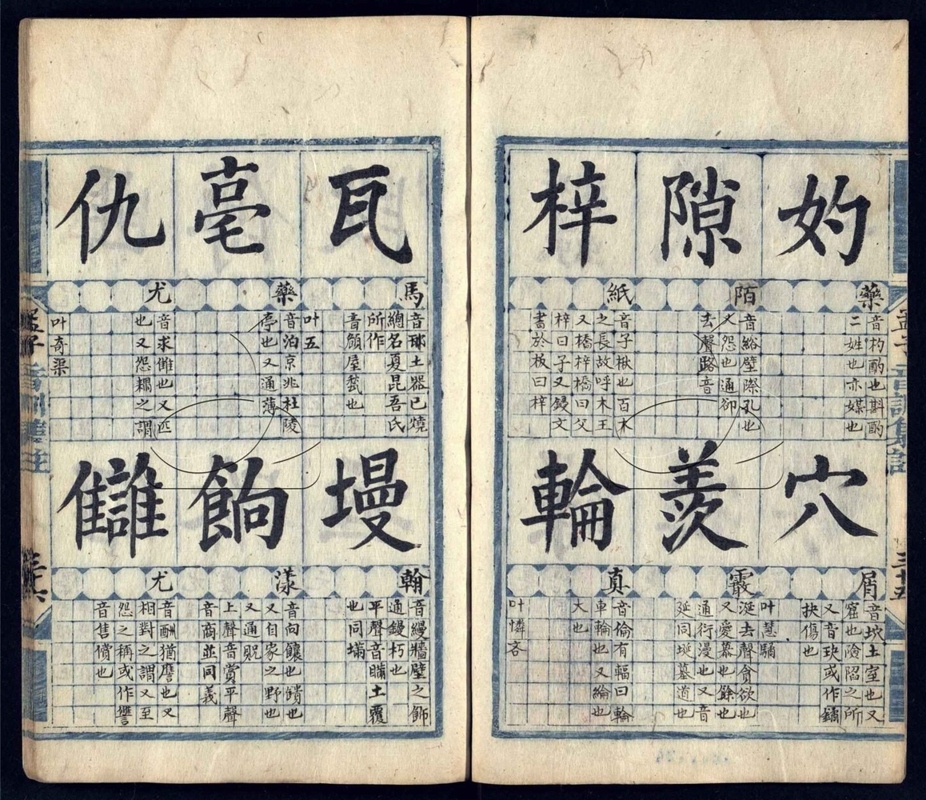 妁
藥
音杓酌也斟酌
二姓也亦媒也
隙
陌
音綌壁際孔也
又怨也通郤
去聲路音
梓
紙
音子楸也百木
之長故呼木王
又橋梓橋曰父
梓曰子又鋟文
書於板曰梓
穴
屑
土室也又
窟也險陷之所
又音玦或作鐍
抉傷也
羨
霰
涎去聲貪欲也
又愛慕也餘也
通衍漫也又音
延同埏墓道也
叶慧
輪
真
音倫有輻曰輪
車輪也又綸也
大也
叶憐吝
孟子音訓集註
三十五
瓦
馬
土器已燒
總名夏昆吾氏
所作
音頠屋甍也
叶五
亳
藥
音泊京兆杜陵
亭也又通薄
仇
尤
音求讎也又匹
也又怨耦之謂
叶奇渠
墁
翰
音縵牆壁之飾
通鏝杇也
平聲音瞞土覆
也同墁
餉
漾
音向饟也饋也
又自家之野也
又通贶
上聲音賞平聲
音商並同義
讎
尤
音酬猶譍也又
相對之謂又至
怨之稱或作讐
音售償也
孟子音訓集註
三十六